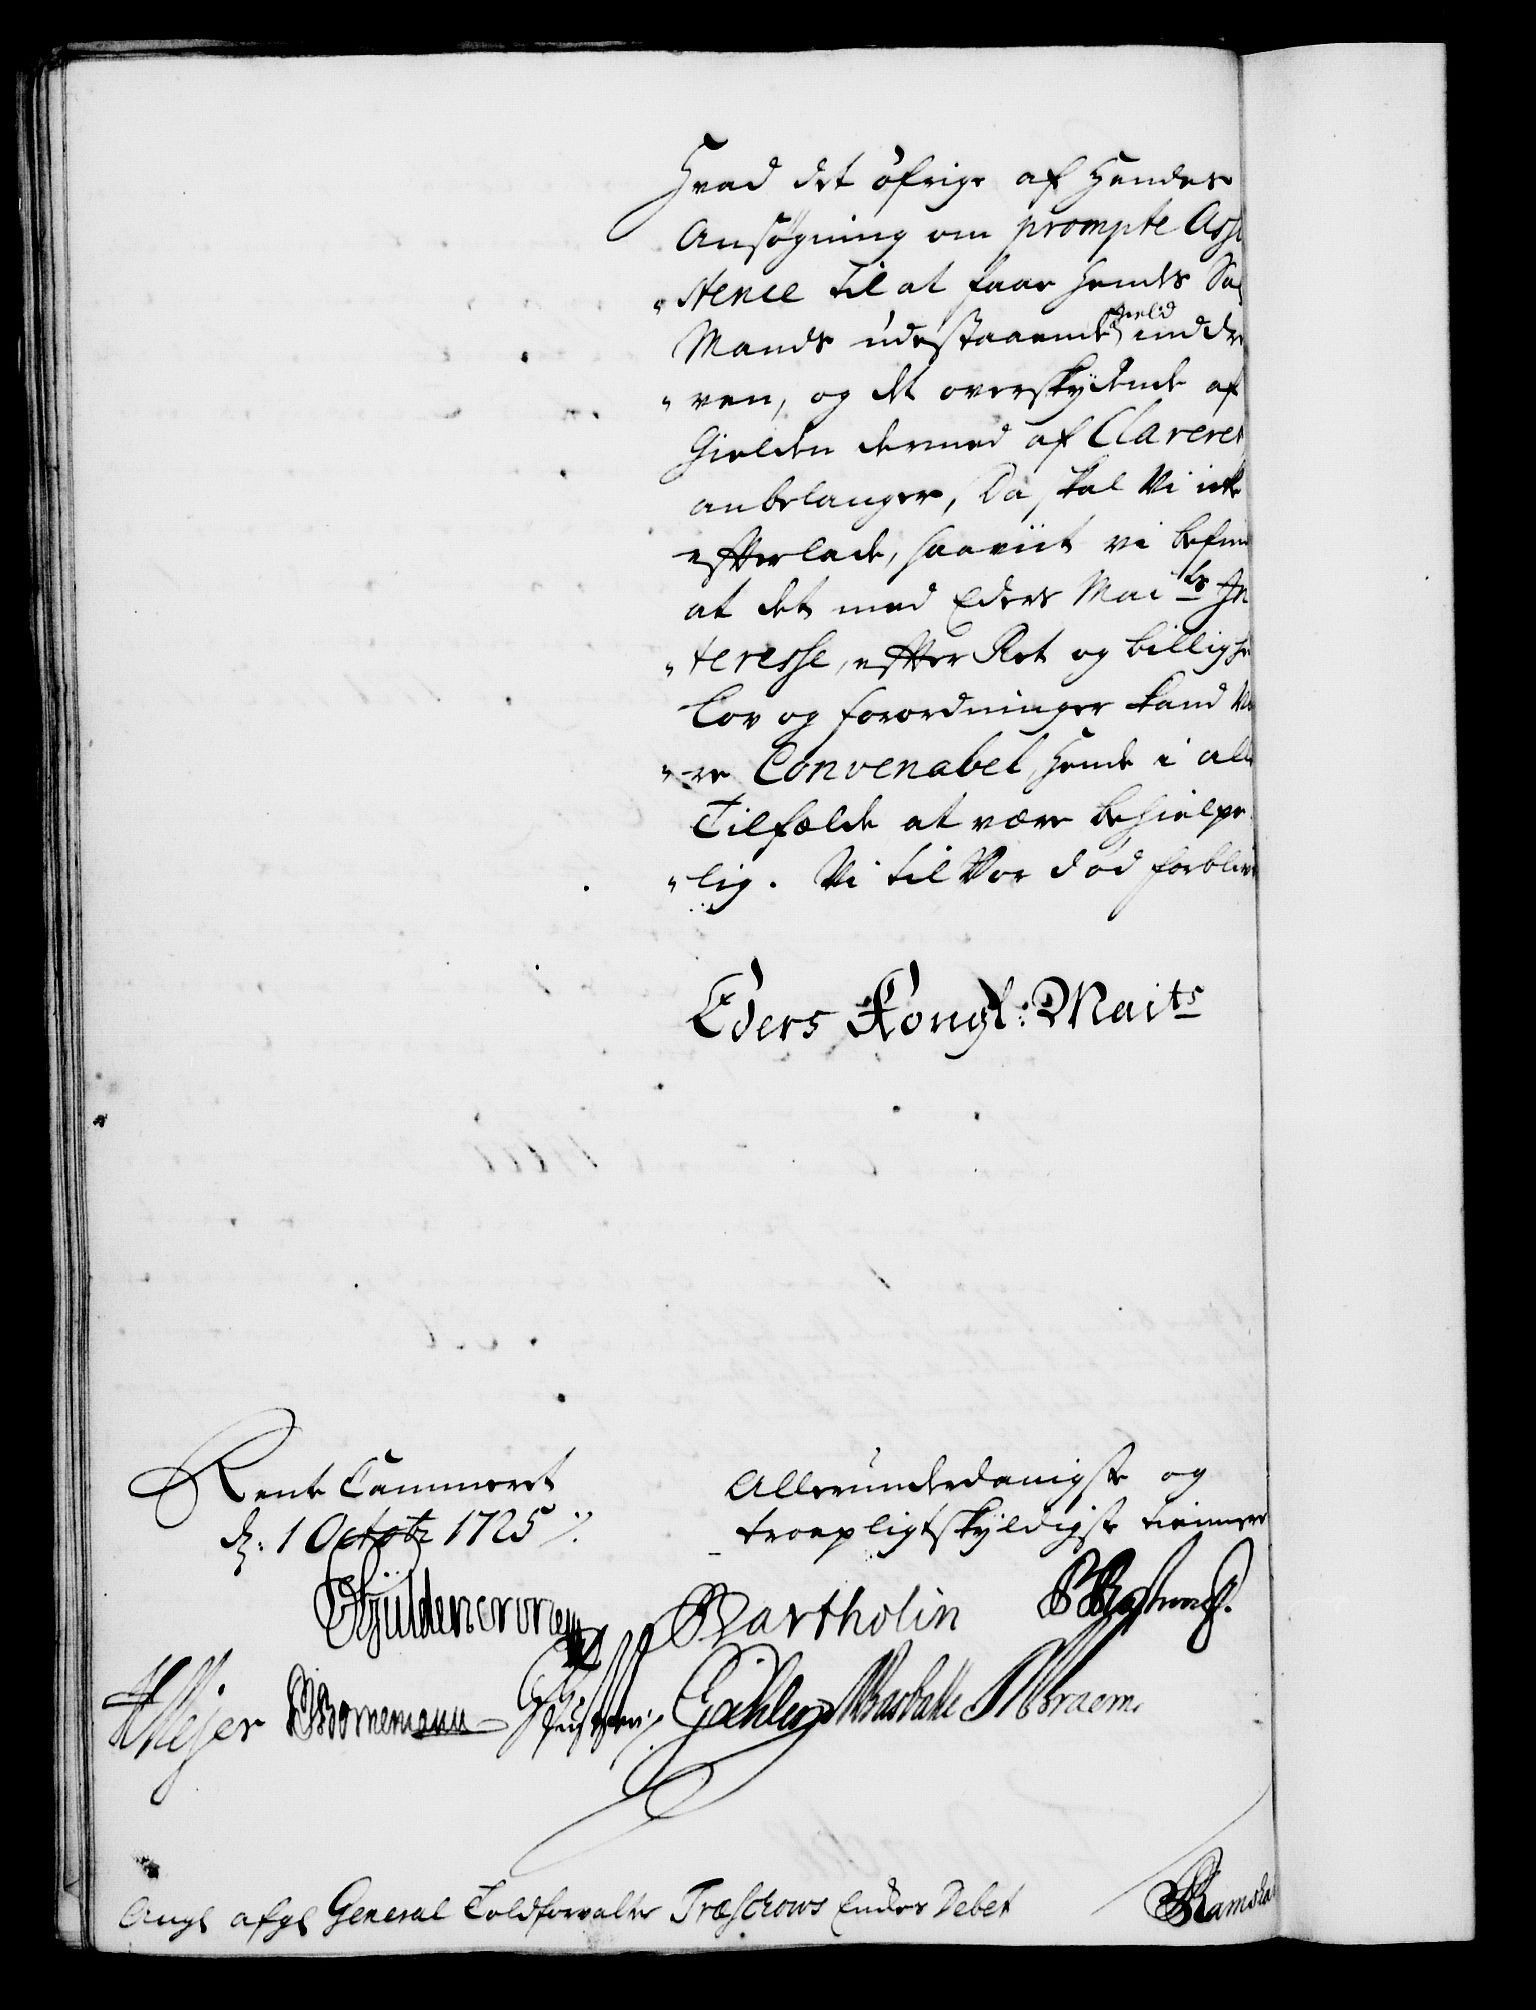 Hvad det öfrige af Hendes
Ansögning om prompte Assi
„stence til at faae hendes Sal
Mands udestaaende Gield inddre
„ven, og det overskydende af
Gielden dermed af Clareret
anbelanger, Da skal Vi icke
efterlade, saaviit vi befin
at det med Eders Maits In
„teresse, efter Ret og billighe
Lov og forordninger kand Væ
„re Convenabel, hende i alle
Tilfælde at være behielpe
„lig. Vi til Vor död forblive
Eders Kongl: Maits
Rente Cammeret
d: 1 Octobr 1725
Allerunderdanigste og
troepligtskyldigste tiennere
Güldencrone
Bartholin
HMejer Bornemann
Braem
Ang: afg: General Toldforvalter Træschows Enckes Debet
Ramshar